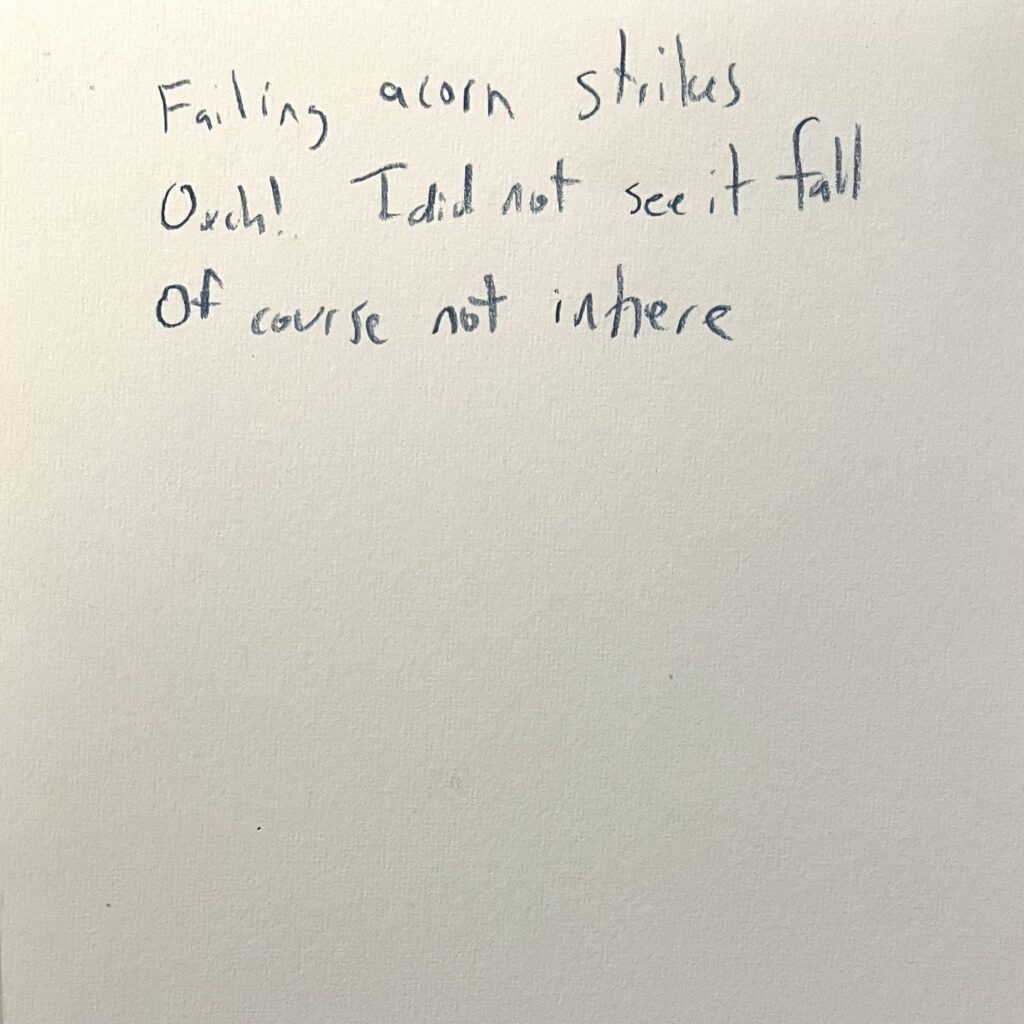 Failing acorn strikes
Ouch! I did not see it fall
Of course not in here